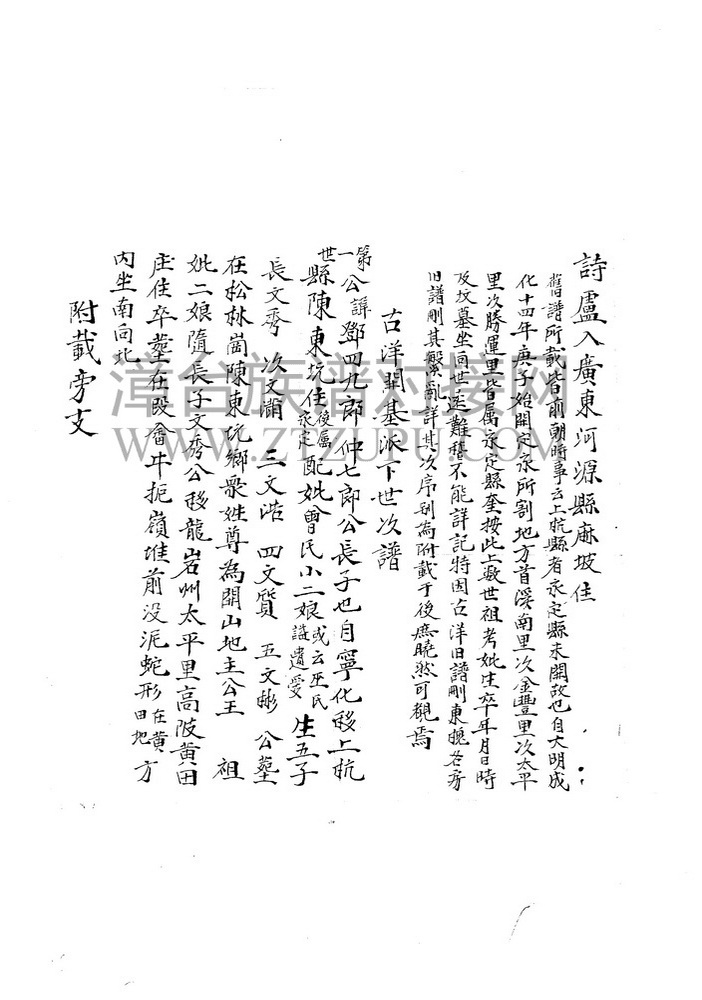 詩盧入廣東河源縣麻坡住
舊譜所載皆前朝時事云上杭縣者永定縣未開故也自大明成
化十四年庚子始開定永所割地方首溪南里次金豐里次太平
里次勝運里皆属永定縣奎按此上数世祖考妣生卒年月日時
及坟墓坐同世遠難稽不能詳記特因古洋旧譜剛東 各房
旧譜刪其繁亂詳其次序別為附載于後庶曉然可觀焉
古洋開基派下世次譜
第一世 公諱鄧四九郎仲七郎公長子也自寧化移上杭
縣陳東坑住後属永定配妣曾氏小二娘或云巫氏 遺受生五子
長文秀 次文瀰 三文浩 四文質 五文彬 公墓
在松林崗陳東坑鄉衆姓尊為開山地主公王 祖
妣二娘隨長子文秀公移龍岩州太平里高陂黃田
庄住卒塟在 會井扼嶺堆前没泥蛇形在黃田地方
内坐南向北
附載旁支
漳台族谱对接网
WWW.ZTZUPU.COM